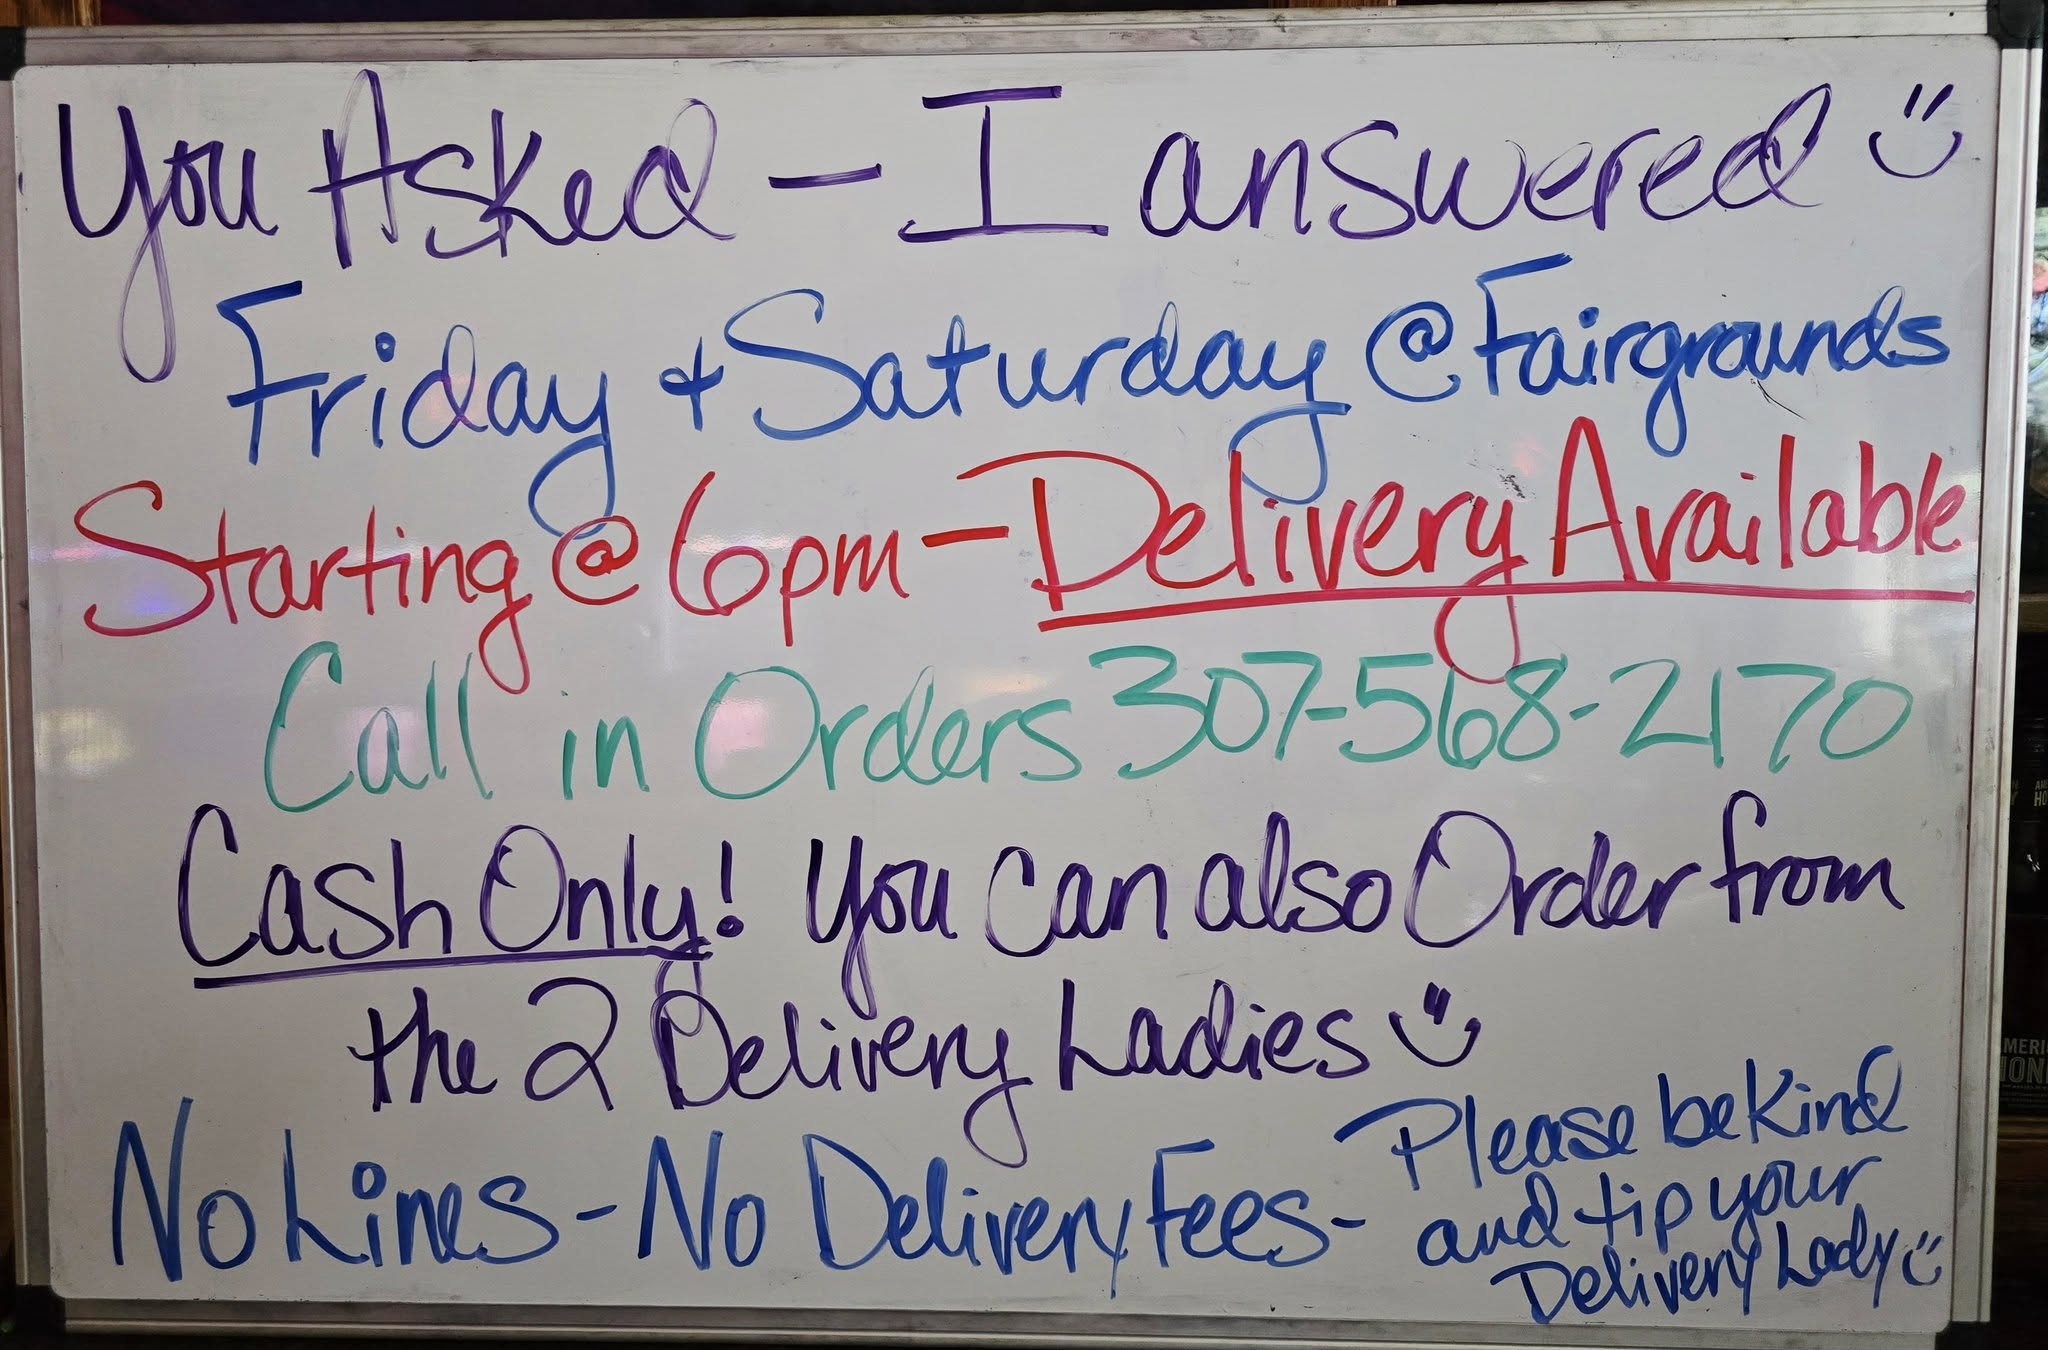 You Asked - I answered
Friday + Saturday @ Fairgrounds
Starting @ 6pm - Delivery Available
Call in Orders 307-568-2170
Cash Only! You can also Order from
the 2 Delivery Ladies
No Lines - No Delivery Fees -
Please be Kind
and tip your
Delivery Lady